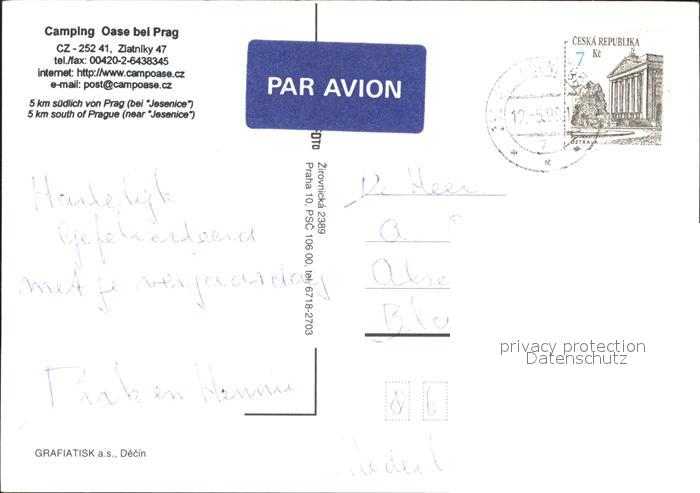 Camping Oase bei Prag
CZ - 252 41, Zlatníky 47
tel./fax: 00420-2-6438345
internet: http://www.campoase.cz
e-mail: post@campoase.cz
5 km südlich von Prag (bei "Jesenice")
5 km south of Prague (near "Jesenice")
PAR AVION
ČESKÁ REPUBLIKA
7 Kč
OSTRAVA
FOTO
Žirovnická 2389
Praha 10, PSČ 106 00, tel. 6718-2703
Hartelijk
Gefeliciteerd
met je verjaardag
en Hennie
Heer
A
privacy protection
Datenschutz
8 6
GRAFIATISK a.s., Děčín